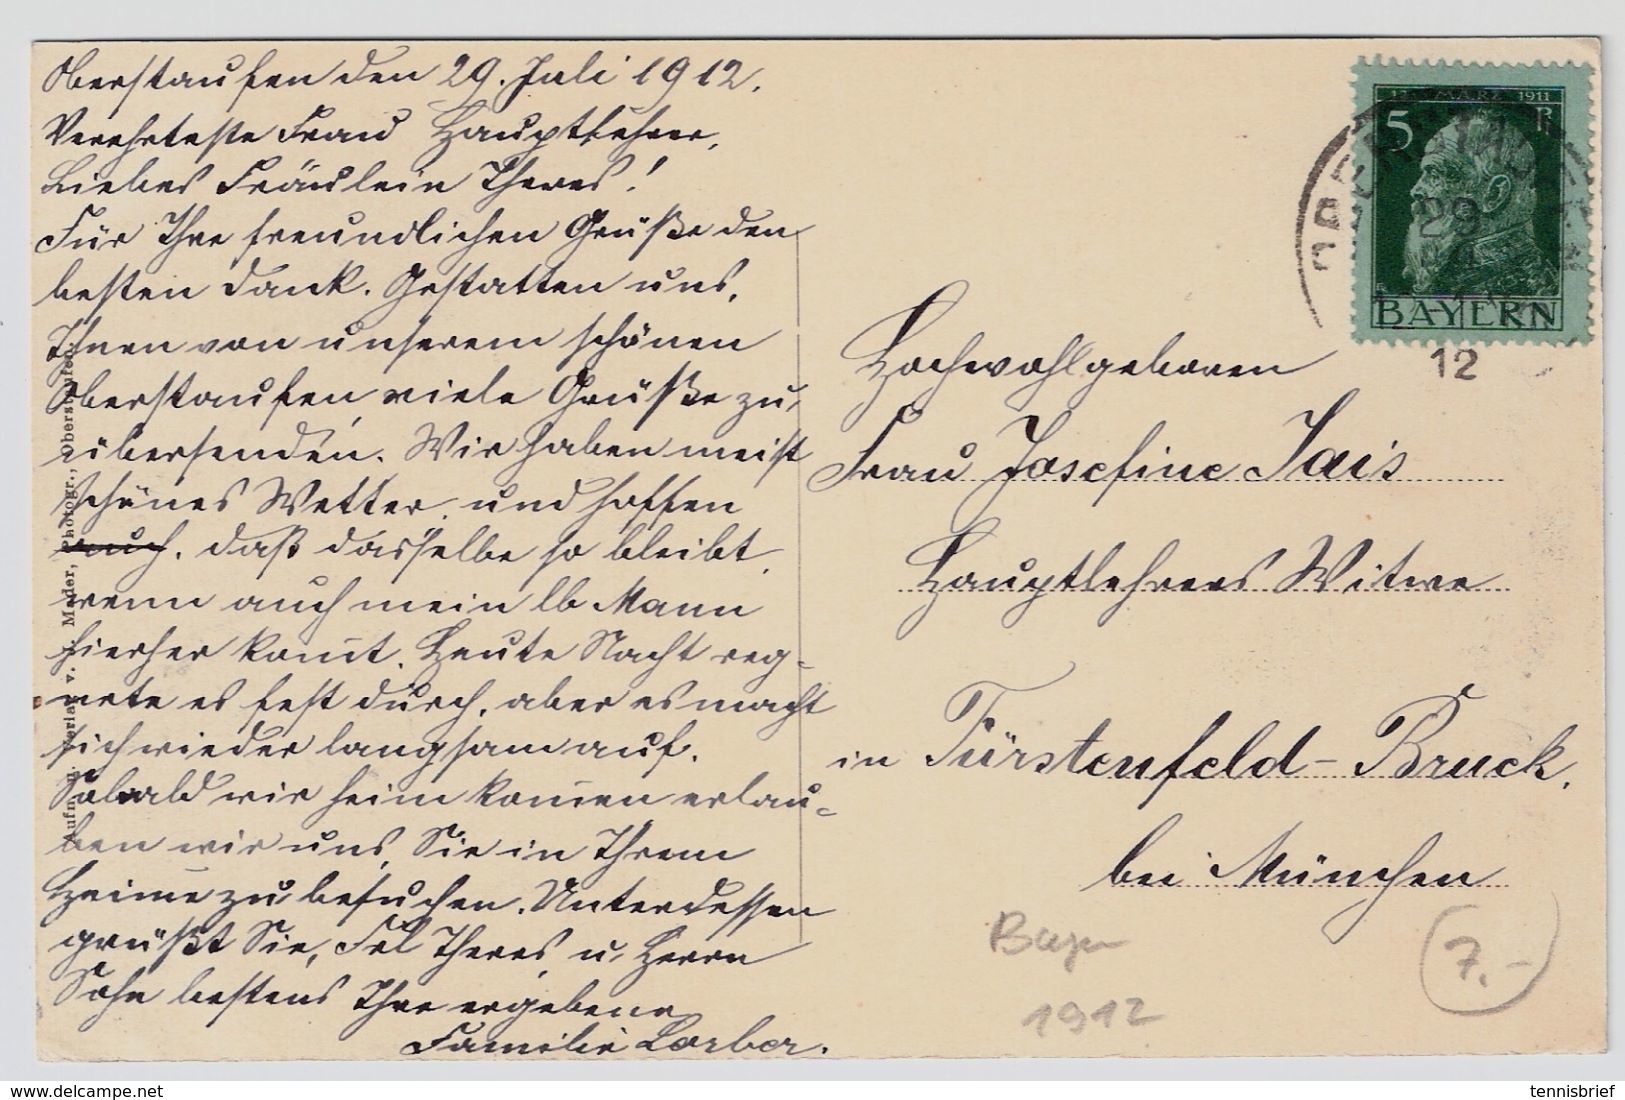 Oberstaufen den 29. Juli 1912.
Verehrteste Frau Hauptlehrer,
Liebes Fräulein Theres!
Für Ihre freundlichen Grüße den
besten Dank. Gestatten uns,
Ihnen von unserem schönen
Oberstaufen viele Grüße zu
übersenden. Wir haben meist
schönes Wetter und hoffen
auch, daß dasselbe so bleibt,
wenn auch mein lb Mann
hierher komt. Heute Nacht reg-
nete es fest durch, aber es macht
sich wieder langsam auf.
Sobald wir heim komen erlau-
ben wir uns, Sie in Ihrem
Heime zu besuchen. Unterdessen
grüßt Sie, Frl Theres u. Herrn
Sohn bestens Ihre ergebene
Familie Lorber.
Aufn. u. Verlag v. Mader, Photogr., Oberstaufen.
12. MÄRZ 1911
5
BAYERN
OBERSTAUFEN
29
12
Hochwohlgeboren
Frau Josefine Jais
Hauptlehrers Witwe
in Fürstenfeld-Bruck.
bei München
Bayern
1912
7.-
tennisbrief